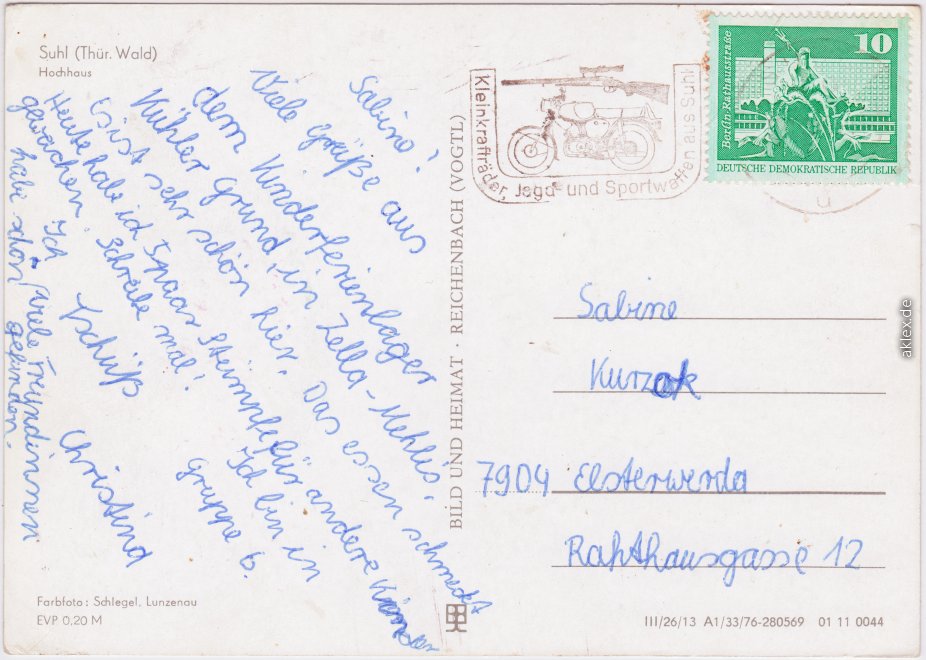 Suhl (Thür. Wald)
Hochhaus
Sabine!
Viele Grüße aus
dem Kinderferienlager
Kühler Grund, in Zella-Mehlis.
Es ist sehr schön hier. Das essen schmeckt
Heute habe ich 5 paar Strümpfe für andere Kinder
gewaschen. Schreibe mal! Ich bin in
Gruppe 6.
Ich
habe schon viele Freundinnen
gefunden.
Tschüß
Christina
Farbfoto: Schlegel, Lunzenau
EVP 0,20 M
BILD UND HEIMAT · REICHENBACH (VOGTL)
Kleinkrafträder, Jagd- und Sportwaffen aus Suhl
10
Berlin Rathausstraße
DEUTSCHE DEMOKRATISCHE REPUBLIK
Sabine
Kurzak
7904 Elsterwerda
Rahthausgasse 12
III/26/13 A1/33/76-280569 01 11 0044
aklex.de